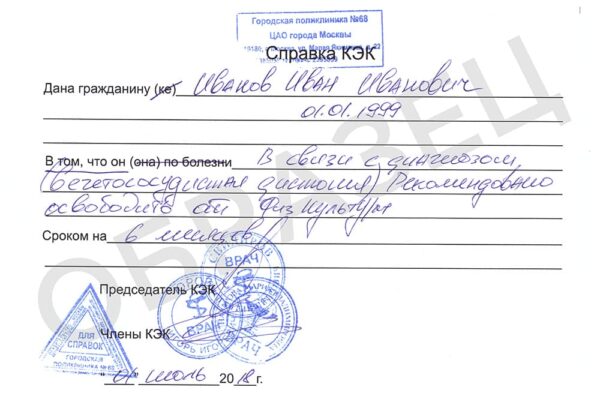 Городская поликлиника №68
ЦАО города Москвы
Справка КЭК
Дана гражданину (ке) Иванов Иван Иванович
01.01.1999
В том, что он (она) по болезни В связи с диагнозом
(вегетососудистая дистония) Рекомендовано
освободить от физкультуры
Сроком на 6 месяцев
ВРАЧ
Председатель КЭК
ВРАЧ
Члены КЭК
ВРАЧ
ДЛЯ
СПРАВОК
ГОРОДСКАЯ
ПОЛИКЛИНИКА №68
июль 2018г.
ОБРАЗЕЦ